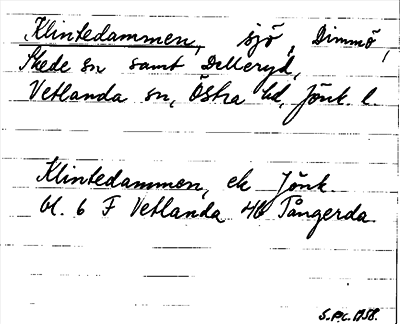 Klintedammen, sjö, Dimmö,
Skede sn samt Delleryd,
Vetlanda sn, Östra hd, Jönk. l.
Klintedammen, ek Jönk
bl. 6 F Vetlanda 46 Tångerda.
S.P.C. 1758.